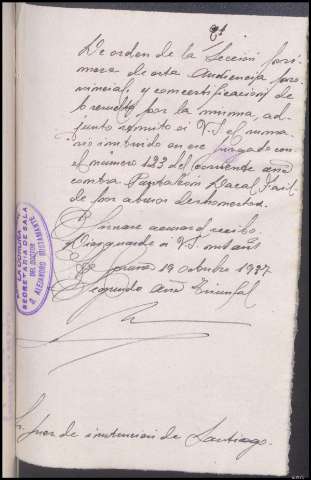 De orden de la Sección pri-
mera de esta Audiencia pro-
vincial, y con certificación de
lo resuelto por la misma, ad-
junto remito a V.S. el suma-
rio instruido en ese Juzgado con
el número 133 del corriente año
contra Pantaleón
por abusos deshonestos.
Sírvase acusar el recibo.
Dios guarde a V.S. m. años
19 octubre 1937
Segundo Año Triunfal
Sr. Juez de instrucción de Santiago.
LA CORUÑA
SECRETARIA DE SALA
DEL DOCTOR
D. ALEJANDRO BUSTAMANTE